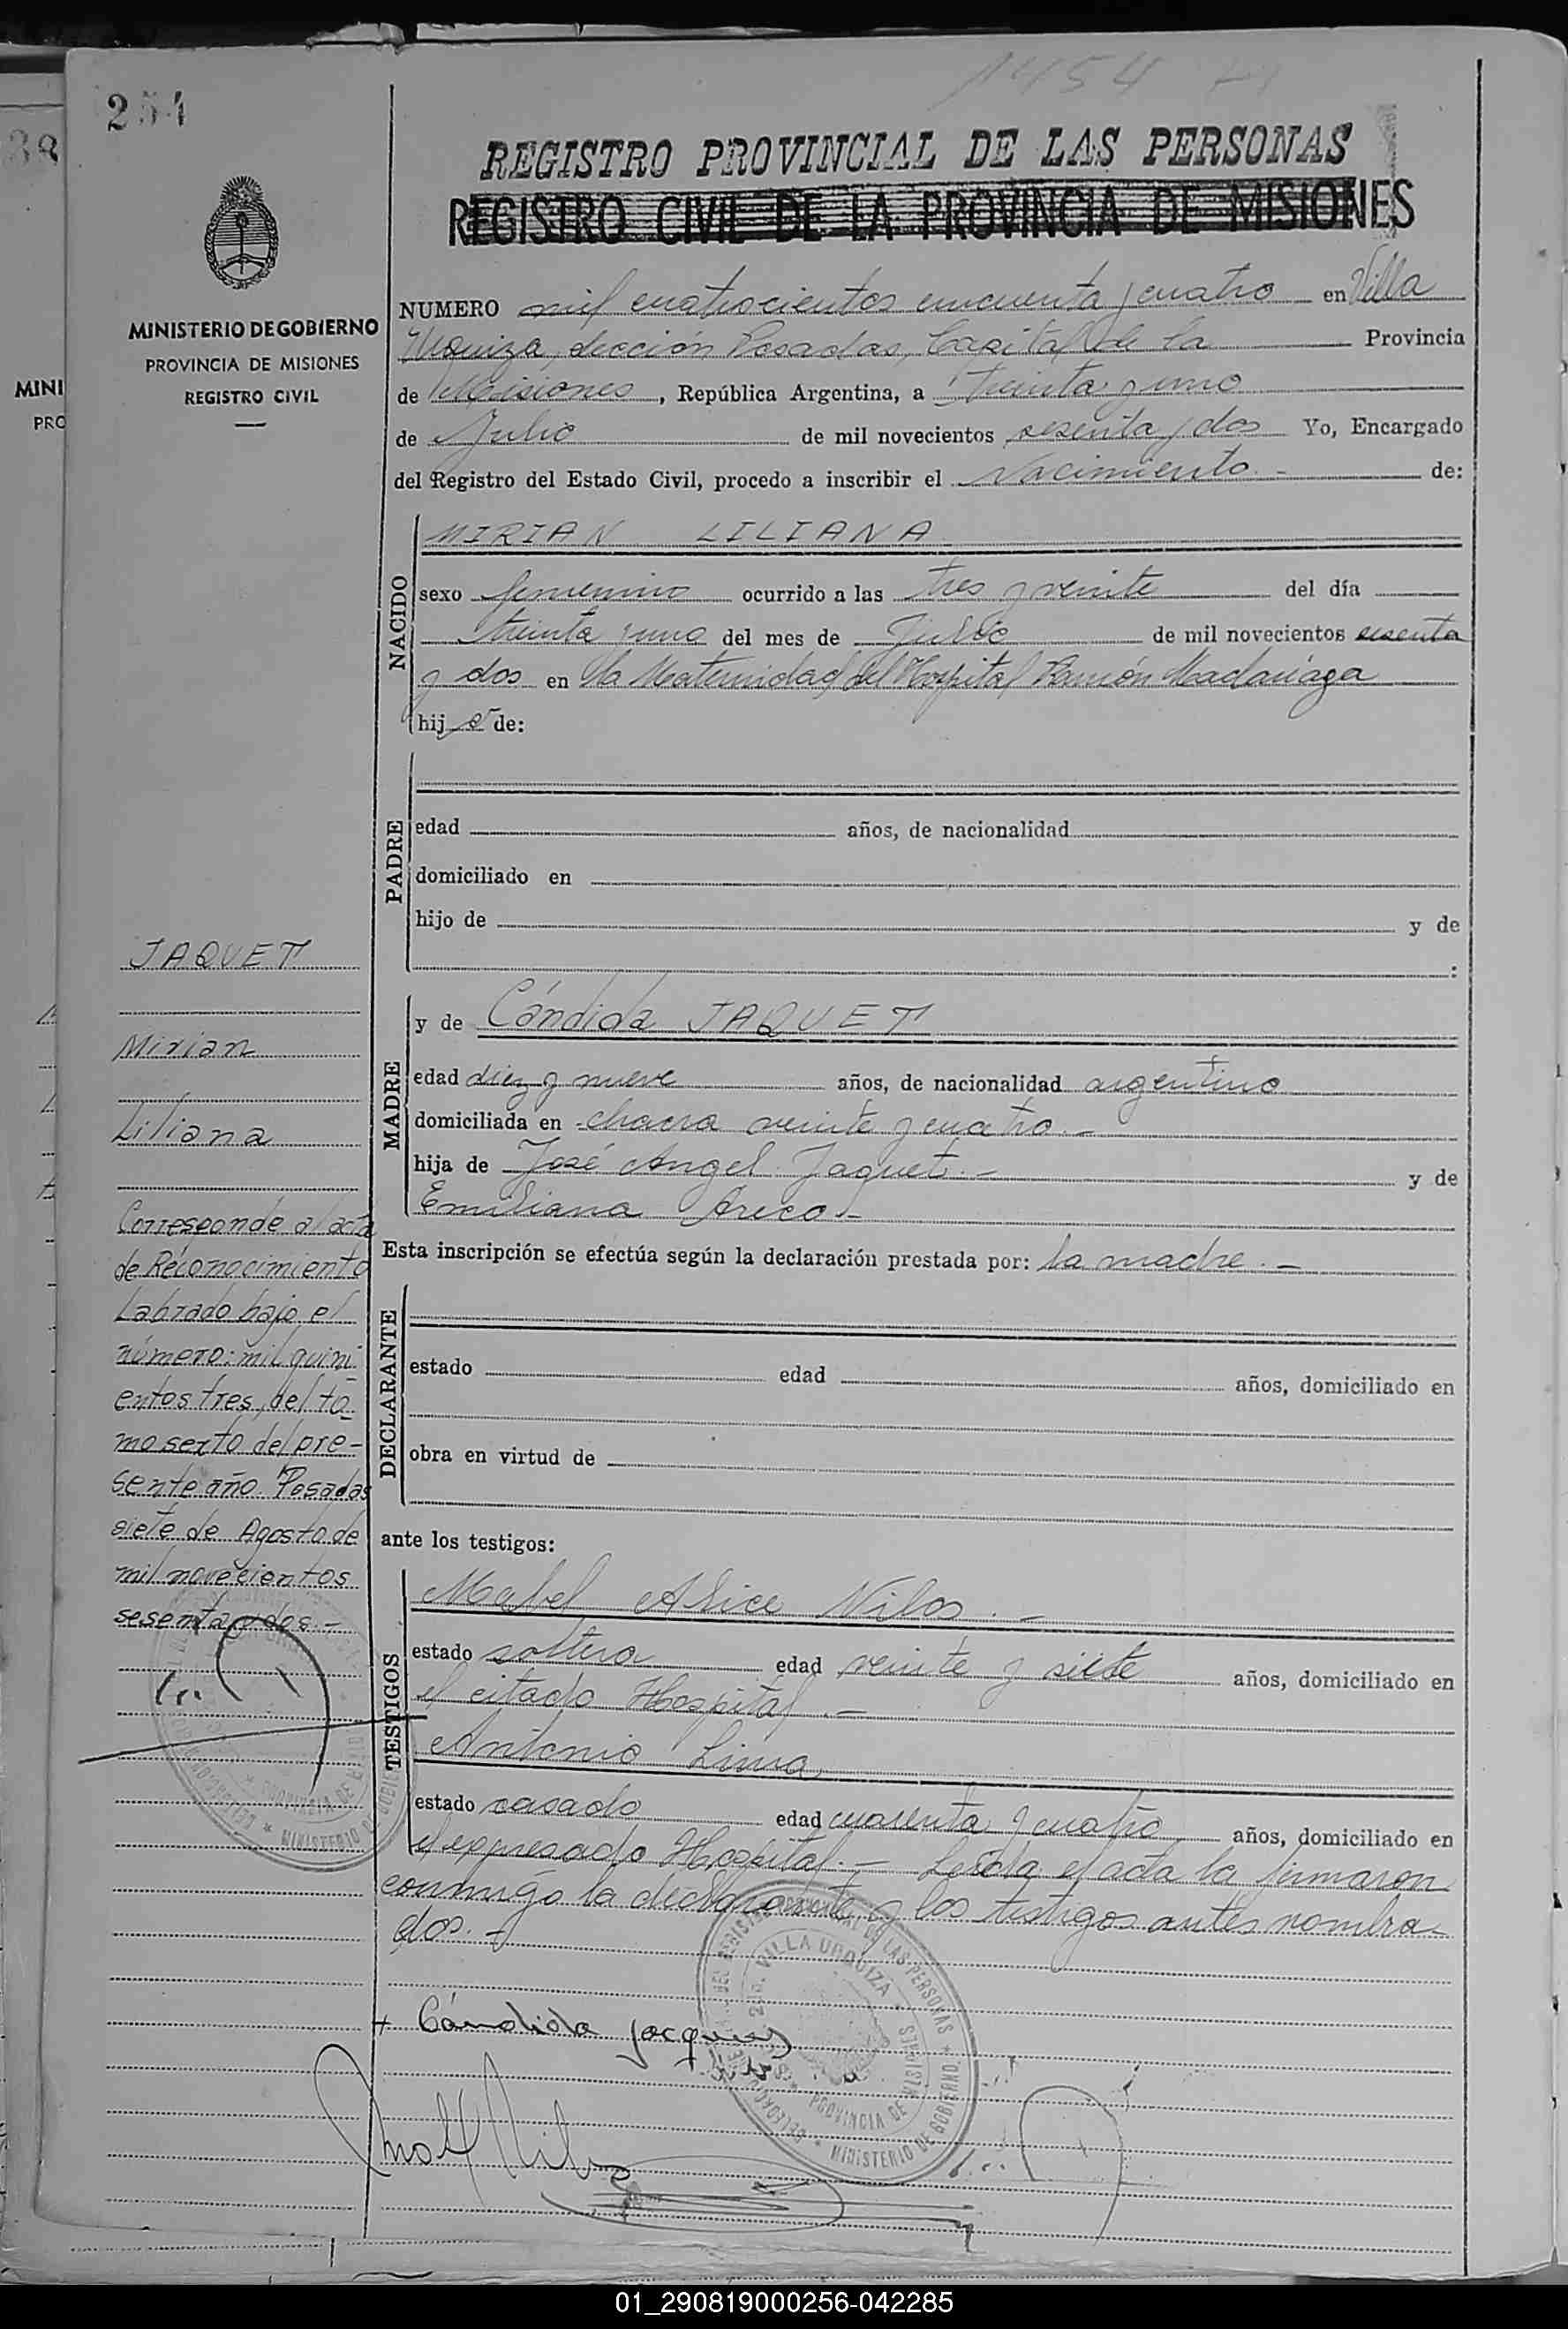 254
1454
REGISTRO PROVINCIAL DE LAS PERSONAS
REGISTRO CIVIL DE LA PROVINCIA DE MISIONES
MINISTERIO DE GOBIERNO
PROVINCIA DE MISIONES
REGISTRO CIVIL
NUMERO mil cuatrocientos cincuenta y cuatro en Villa
Urquiza, sección Posadas, Capital de la Provincia
de Misiones, República Argentina, a treinta y uno
de Julio de mil novecientos sesenta y dos Yo, Encargado
del Registro del Estado Civil, procedo a inscribir el Nacimiento.- de:
NACIDO
MIRIAN LILIANA
sexo femenino ocurrido a las tres y veinte del día
treinta y uno del mes de Julio de mil novecientos sesenta
y dos en la Maternidad del Hospital Ramón Madariaga
hij a de:
PADRE
edad años, de nacionalidad
domiciliado en
hijo de y de
:
MADRE
y de Cándida JAQUET
edad diez y nueve años, de nacionalidad argentina
domiciliada en chacra veinte y cuatro.-
hija de José Angel Jaquet.- y de
Emiliana Areco.-
Esta inscripción se efectúa según la declaración prestada por: la madre.-
DECLARANTE
estado edad años, domiciliado en
obra en virtud de
ante los testigos:
TESTIGOS
Mabel Alice Vilos.-
estado soltera edad veinte y siete años, domiciliado en
el citado Hospital.-
Antonio Lima
estado casado edad cuarenta y cuatro años, domiciliado en
el expresado Hospital.- Leída el acta la firmaron
conmigo la declarante y los testigos antes nombra-
dos.-
+ Cándida Jacquet
JAQUET
Mirian
Liliana
Corresponde al acta
de Reconocimiento
Labrado bajo el
número: mil quini
entos tres, del to_
mo sexto del pre-
sente año. Posadas
siete de Agosto de
mil novecientos
sesenta y dos.-
VILLA URQUIZA
PROVINCIA DE MISIONES
MINISTERIO DE GOBIERNO
01_290819000256-042285